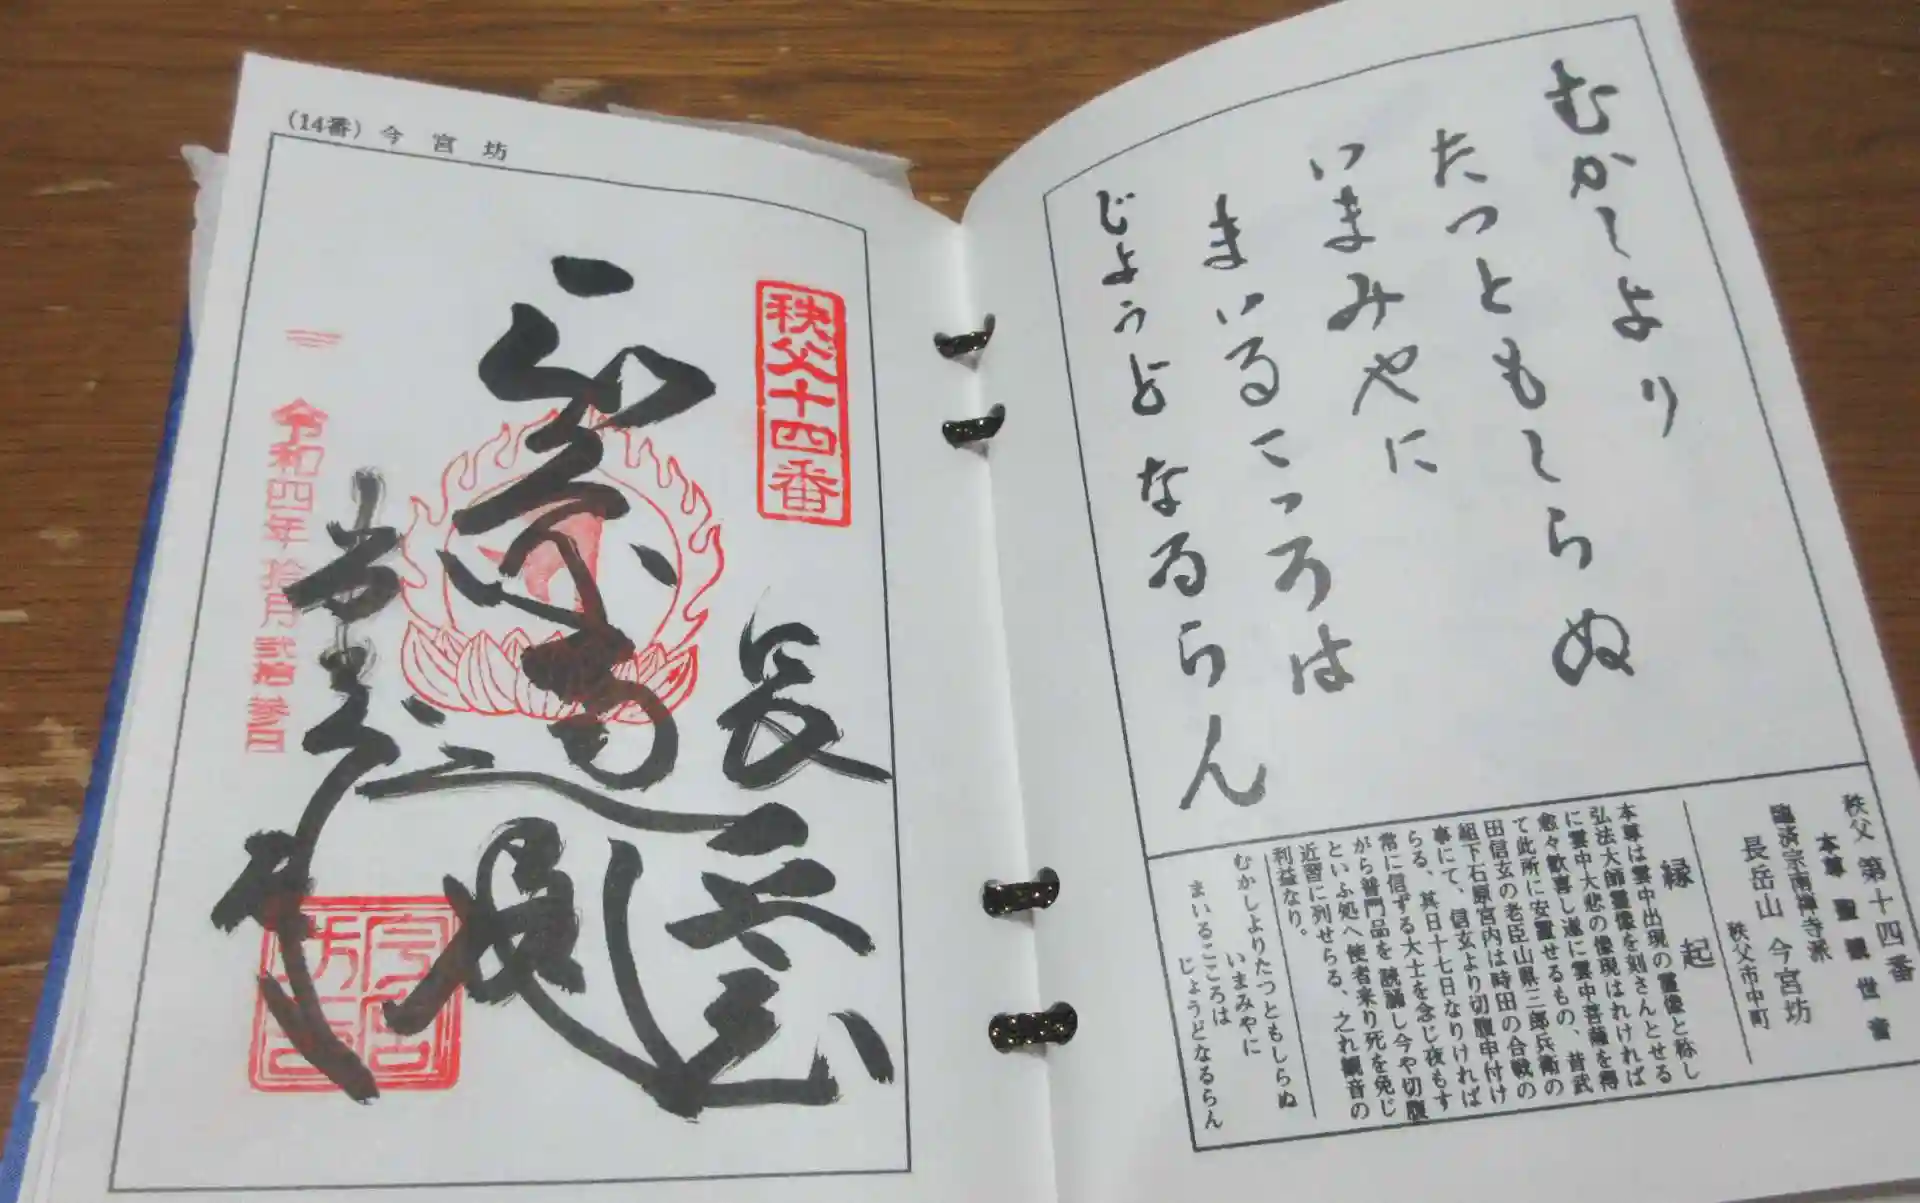 むかしより
たつともしらぬ
いまみやに
まいるこころは
じょうどなるらん
秩父 第十四番
本尊 聖観世音
臨済宗南禅寺派
長岳山 今宮坊
秩父市中町
縁起
本尊は雲中出現の霊像と称し
弘法大師霊像を刻さんとせる
に雲中大悲の像現はれければ
愈々歓喜し遂に雲中菩薩を得
て此所に安置せるもの、昔武
田信玄の老臣山県三郎兵衛の
組下石原宮内は時田の合戦の
事にて、信玄より切腹申付け
らる、其日十七日なりければ
常に信ずる大士を念じ夜もす
がら普門品を読誦し今や切腹
といふ処へ使者来り死を免じ
近習に列せらる、之れ観音の
利益なり。
むかしよりたつともしらぬ
いまみやに
まいるこころは
じょうどなるらん
(14番) 今宮坊
秩父十四番
長岳山
令和四年拾月弐拾参日
今宮坊